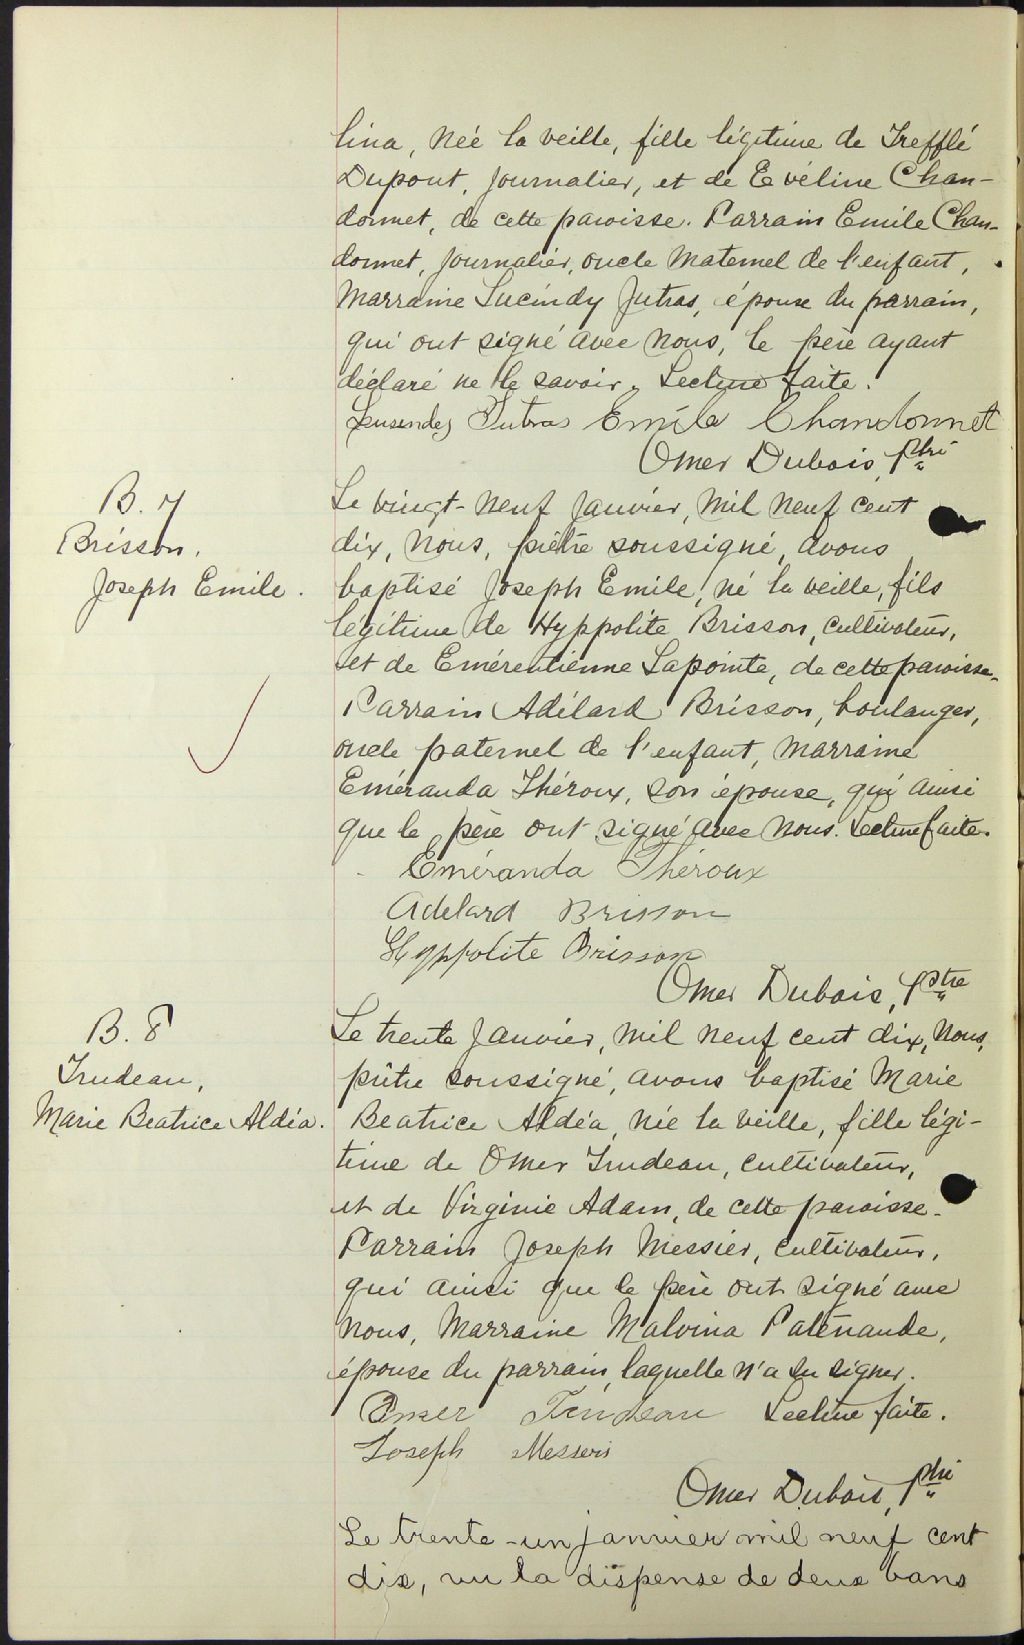 lina, née la veille, fille légitime de Trefflé
Dupont, journalier, et de Evéline Chan-
donnet, de cette paroisse. Parrain Emile Chan-
donnet, journalier, oncle maternel de l'enfant,
Marraine Lucindy Jutras, épouse du parrain,
qui ont signé avec nous, le père ayant
déclaré ne le savoir. Lecture faite.
Jutras Emile Chandonnet
Omer Dubois, Ptre
B. 7
Brisson,
Joseph Emile.
Le vingt-neuf janvier, mil neuf cent
dix, nous, prêtre soussigné, avons
baptisé Joseph Emile, né la veille, fils
légitime de Hyppolite Brisson, cultivateur,
et de Emérentienne Lapointe, de cette paroisse.
Parrain Adélard Brisson, boulanger,
oncle paternel de l'enfant, marraine
Eméranda Théroux, son épouse, qui ainsi
que le père ont signé avec nous. Lecture faite.
Eméranda Théroux
Adelard Brisson
Hyppolite Brisson
Omer Dubois, Ptre
B. 8
Trudeau,
Marie Beatrice Aldéa.
Le trente janvier, mil neuf cent dix, nous,
prêtre soussigné, avons baptisé Marie
Beatrice Aldéa, née la veille, fille légi-
time de Omer Trudeau, cultivateur,
et de Virginie Adam, de cette paroisse.
Parrain Joseph Messier, cultivateur,
qui ainsi que le père ont signé avec
nous, Marraine Malvina Paténaude,
épouse du parrain, laquelle n'a su signer.
Omer Trudeau Lecture faite.
Joseph Messier
Omer Dubois, Ptre
Le trente-un janvier mil neuf cent
dix, vu la dispense de deux bans